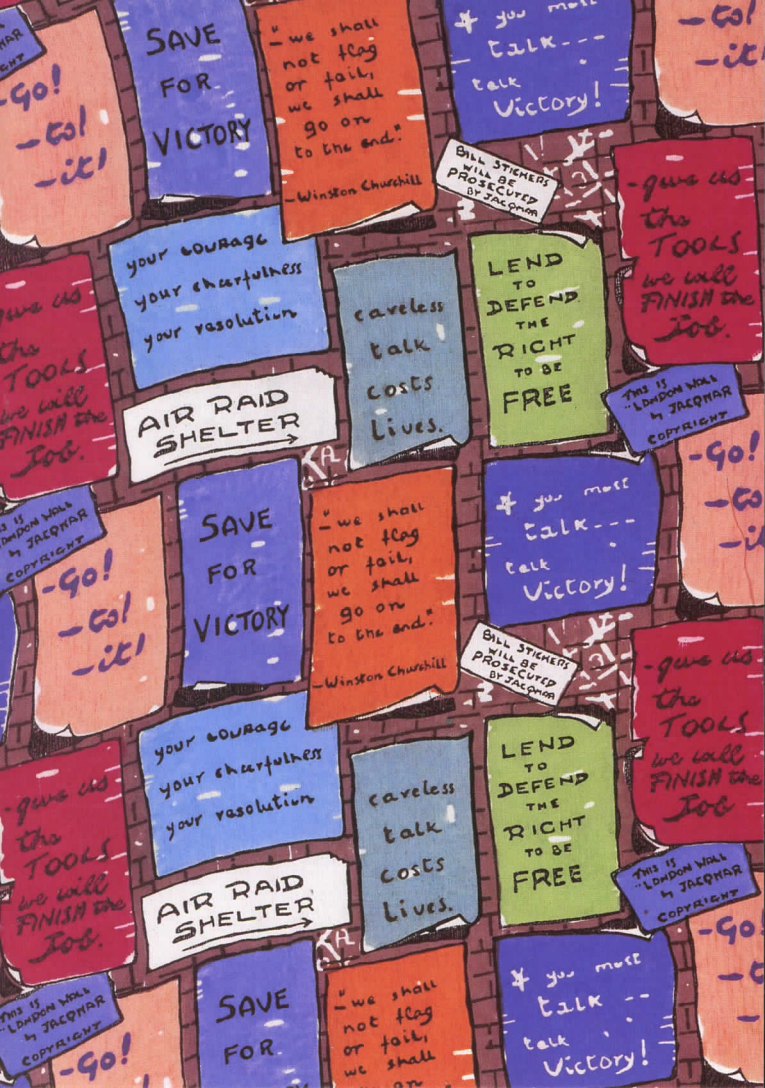 MAR
GHT
-Go!
-to!
-it!
SAVE
FOR
VICTORY
"-we shall
not flag
or fail,
we shall
go on
to the end."
-Winston Churchill
If you must
talk---
talk
Victory!
-to!
-it!
BILL STICKERS
WILL BE
PROSECUTED
BY JACQMAR
-give us
the
TOOLS
we will
FINISH the
Job.
give us
the
TOOLS
we will
FINISH the
Job.
your courage
your cheerfulness
your resolution
careless
talk
costs
lives.
LEND
TO
DEFEND
THE
RIGHT
TO BE
FREE
AIR RAID
SHELTER
THIS IS
"LONDON WALL"
by JACQMAR
COPYRIGHT
THIS IS
LONDON WALL
by JACQMAR
COPYRIGHT
-Go!
-to!
-it!
SAVE
FOR
VICTORY
"-we shall
not flag
or fail,
we shall
go on
to the end."
-Winston Churchill
If you must
talk---
talk
Victory!
-Go!
-to
-i
BILL STICKERS
WILL BE
PROSECUTED
BY JACQMAR
-give us
the
TOOLS
we will
FINISH the
Job
-give us
the
TOOLS
we will
FINISH the
Job.
your courage
your cheerfulness
your resolution
careless
talk
costs
lives.
LEND
TO
DEFEND
THE
RIGHT
TO BE
FREE
AIR RAID
SHELTER
THIS IS
"LONDON WALL
by JACQMAR
COPYRIGHT
THIS IS
LONDON WALL
by JACQMAR
COPYRIGHT
-Go!
SAVE
FOR
"-we shall
not flag
or fail,
we shall
If you must
talk --
talk
Victory!
-Go!
-t